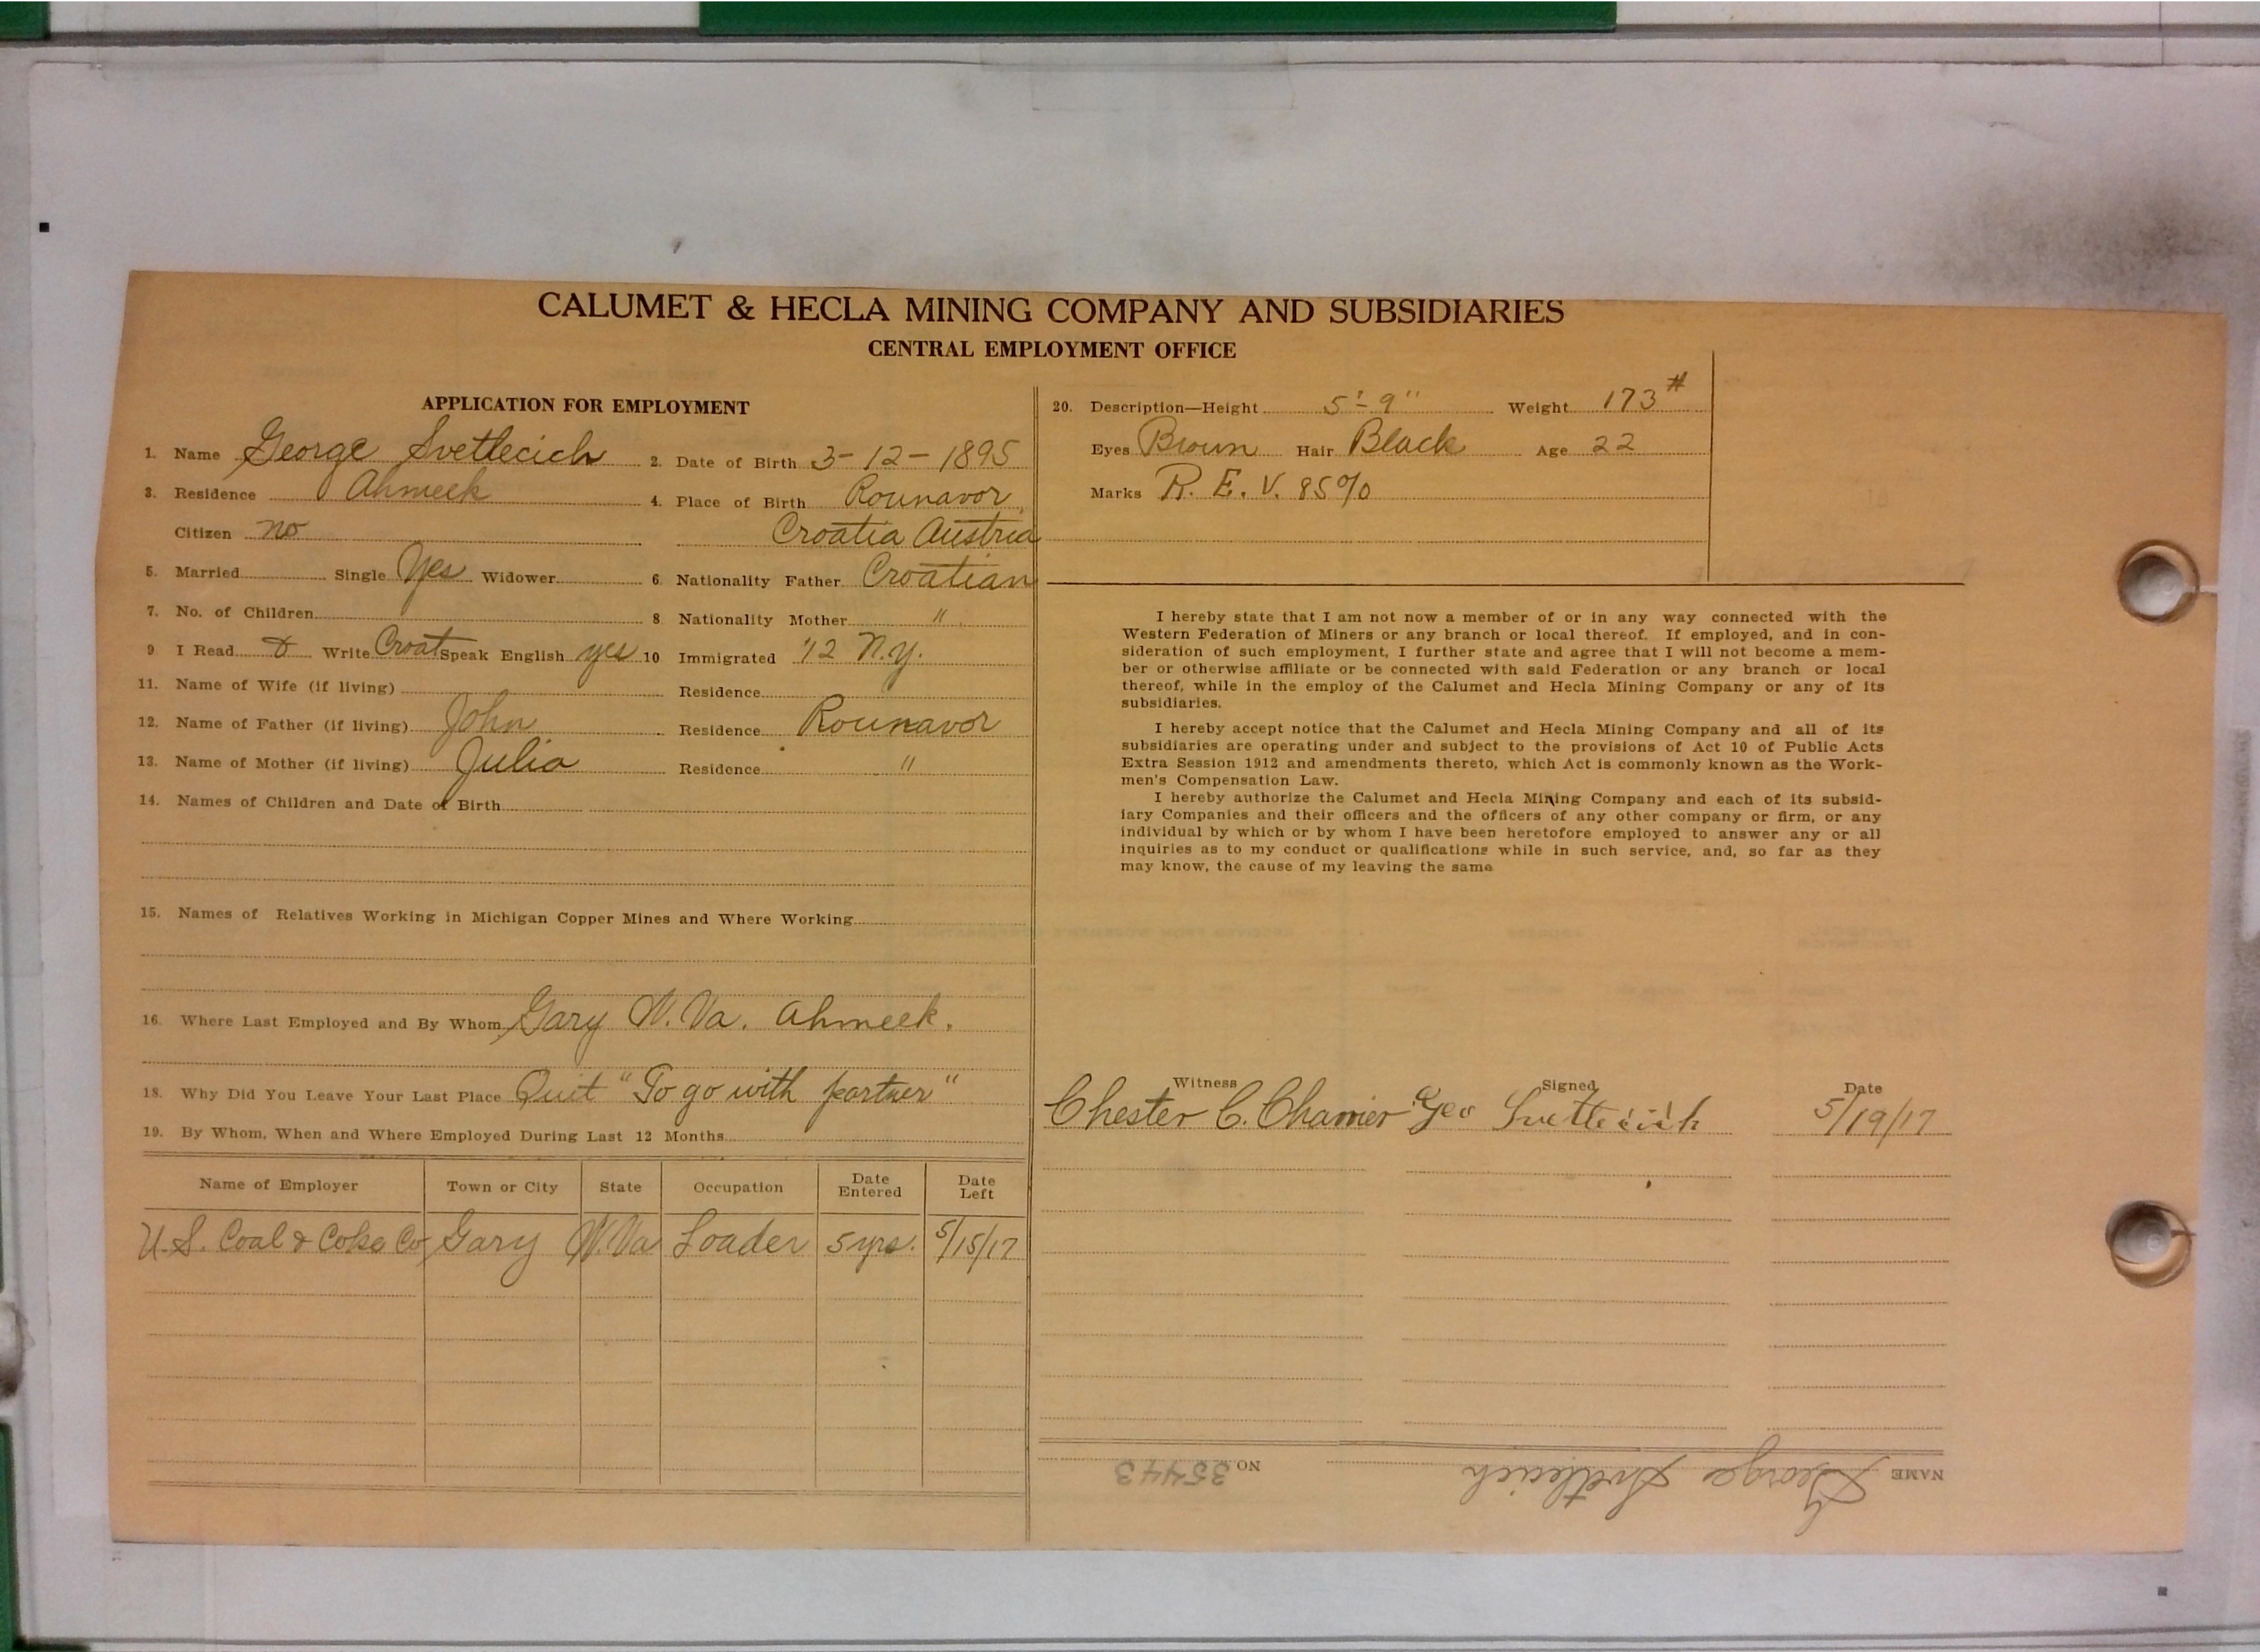 CALUMET & HECLA MINING COMPANY AND SUBSIDIARIES
CENTRAL EMPLOYMENT OFFICE
APPLICATION FOR EMPLOYMENT
1. Name George Svetlecich 2. Date of Birth 3-12-1895
3. Residence Ahmeek 4. Place of Birth Rounavor,
Citizen no Croatia Austria
5. Married Single Yes Widower 6. Nationality Father Croatian
7. No. of Children 8 Nationality Mother "
9 I Read & Write Croat Speak English yes 10 Immigrated '12 N.Y.
11. Name of Wife (if living) Residence
12. Name of Father (if living) John Residence Rounavor
13. Name of Mother (if living) Julia Residence "
14. Names of Children and Date of Birth
15. Names of Relatives Working in Michigan Copper Mines and Where Working
16. Where Last Employed and By Whom Gary W. Va. Ahmeek.
18. Why Did You Leave Your Last Place Quit "To go with partner"
19. By Whom, When and Where Employed During Last 12 Months
Name of Employer Town or City State Occupation Date Entered Date Left
U.S. Coal & Coke Co Gary W.Va Loader 5 yrs. 5/15/17
20. Description—Height 5'-9" Weight 173#
Eyes Brown Hair Black Age 22
Marks R. E. V. 85%
I hereby state that I am not now a member of or in any way connected with the
Western Federation of Miners or any branch or local thereof. If employed, and in con-
sideration of such employment, I further state and agree that I will not become a mem-
ber or otherwise affiliate or be connected with said Federation or any branch or local
thereof, while in the employ of the Calumet and Hecla Mining Company or any of its
subsidiaries.
I hereby accept notice that the Calumet and Hecla Mining Company and all of its
subsidiaries are operating under and subject to the provisions of Act 10 of Public Acts
Extra Session 1912 and amendments thereto, which Act is commonly known as the Work-
men's Compensation Law.
I hereby authorize the Calumet and Hecla Mining Company and each of its subsid-
iary Companies and their officers and the officers of any other company or firm, or any
individual by which or by whom I have been heretofore employed to answer any or all
inquiries as to my conduct or qualifications while in such service, and, so far as they
may know, the cause of my leaving the same
Witness Signed Date
Chester C. Geo Svetlecich 5/19/17
NAME George Svetlecich NO 35443